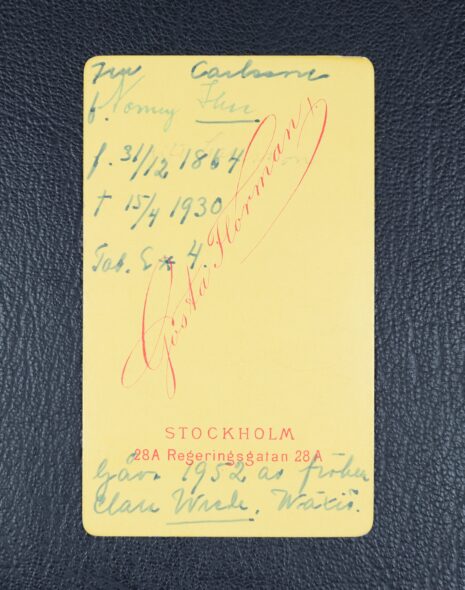 Fru Carlsson
f.
f. 31/12 1864
† 15/4 1930
Tab. Ex 4.
Gösta Florman
STOCKHOLM
28A Regeringsgatan 28A
Gåva 1952 av fröken
Wrede, Wäxiö.